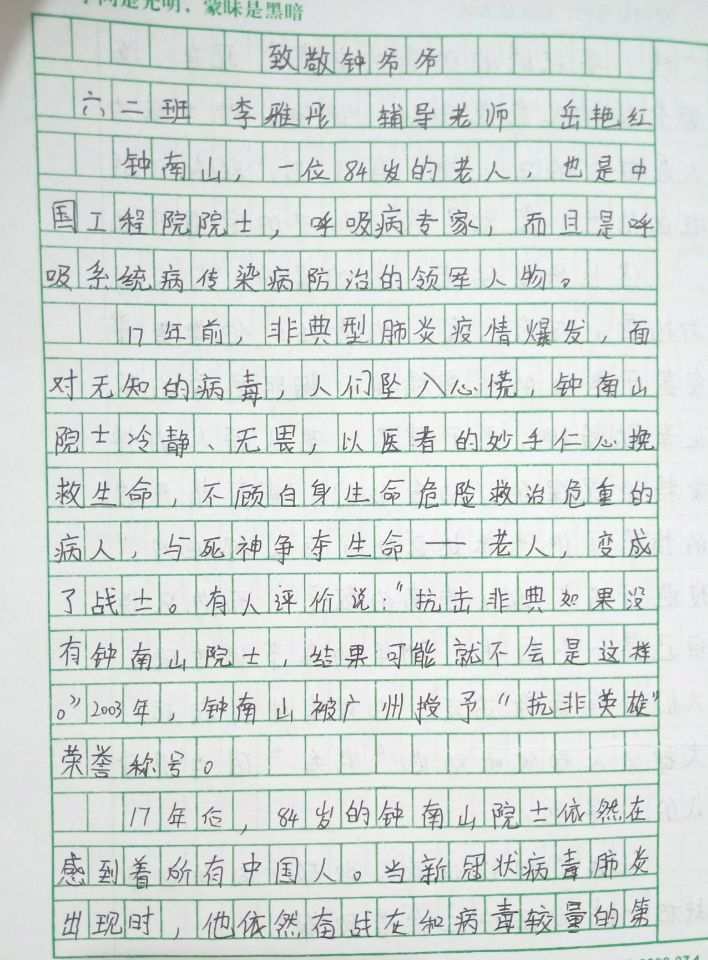 是光明，蒙昧是黑暗
致敬钟爷爷
六二班 李雅彤 辅导老师 岳艳红
钟南山，一位84岁的老人，也是中
国工程院院士，呼吸病专家，而且是呼
吸系统病传染病防治的领军人物。
17年前，非典型肺炎疫情爆发，面
对无知的病毒，人们坠入心慌，钟南山
院士冷静、无畏，以医者的妙手仁心挽
救生命，不顾自身生命危险救治危重的
病人，与死神争夺生命——老人，变成
了战士。有人评价说：“抗击非典如果没
有钟南山院士，结果可能就不会是这样
。”2003年，钟南山被广州授予“抗非英雄”
荣誉称号。
17年后，84岁的钟南山院士依然在
感到着所有中国人。当新冠状病毒肺炎
出现时，他依然奋战在和病毒较量的第